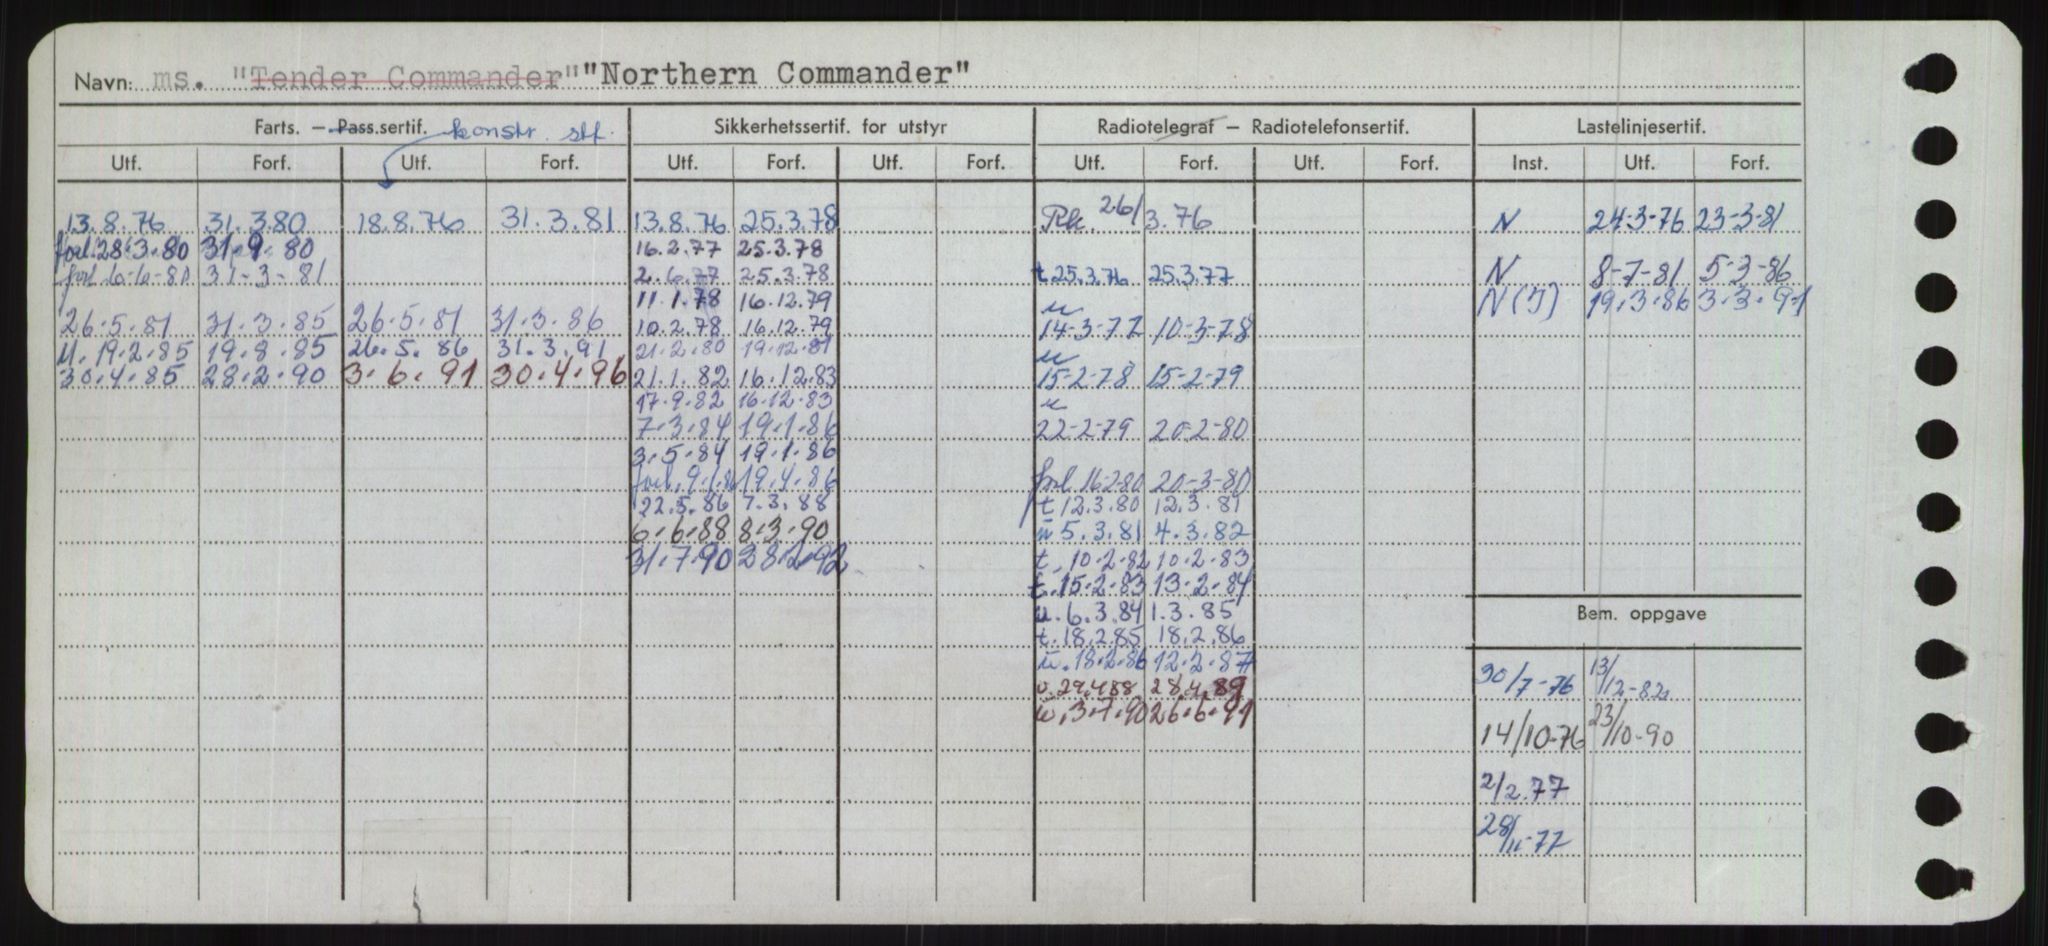 Navn: ms. "Tender Commander" "Northern Commander"
Farts. — Pass.sertif. konstr. stf. Sikkerhetssertif. for utstyr Radiotelegraf — Radiotelefonsertif. Lastelinjesertif.
Utf. Forf. Utf. Forf. Utf. Forf. Utf. Forf. Utf. Forf. Utf. Forf. Inst. Utf. Forf.
13.8.76 31.3.80 18.8.76 31.3.81 13.8.76 25.3.78 Rk. 26/3.76 N 24-3-76 23-3-81
forl. 28.3.80 31.9.80 16.2.77 25.3.78
forl 6-6-80 31-3-81 2.6.77 25.3.78 t 25.3.76 25.3.77 N 8-7-81 5-3-86
11.1.78 16.12.79 u N(J) 19.3.86 3.3.91
26.5.81 31.3.85 26.5.81 31.3.86 10.2.78 16.12.79 14-3-77 10-3-78
M. 19.2.85 19.8.85 26.5.86 31.3.91 21.2.80 19.12.81 u
30.4.85 28.2.90 3.6.91 30.4.96 21.1.82 16.12.83 15-2-78 15-2-79
17.9.82 16.12.83 u
7.3.84 19.1.86 22-2-79 20-2-80
3.5.84 19.1.86
forl. 9.1.86 19.4.86 forl. 16.2.80 20-3-80
22.5.86 7.3.88 t 12.3.80 12.3.81
6.6.88 8.3.90 u 5.3.81 4.3.82
31.7.90 28.2.92 t. 10.2.82 10.2.83
t. 15.2.83 13.2.84
u. 6.3.84 1.3.85 Bem. oppgave
t. 18.2.85 18.2.86
u. 18.2.86 12.2.87
u. 29.4.88 28.4.89 30/7-76 13/12-82
u. 3.7.90 26.6.91
14/10-76 23/10-90
2/2.77
28/11-77